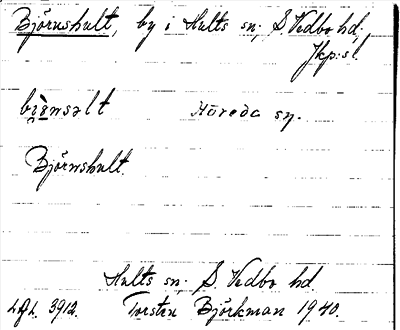 Björnshult, by i Hults sn, S Vedbo hd,
Jkp:s l.
Höreda sn.
Björnshult.
Hults sn. S. Vedbo hd.
3912. Torsten Björkman 1940.